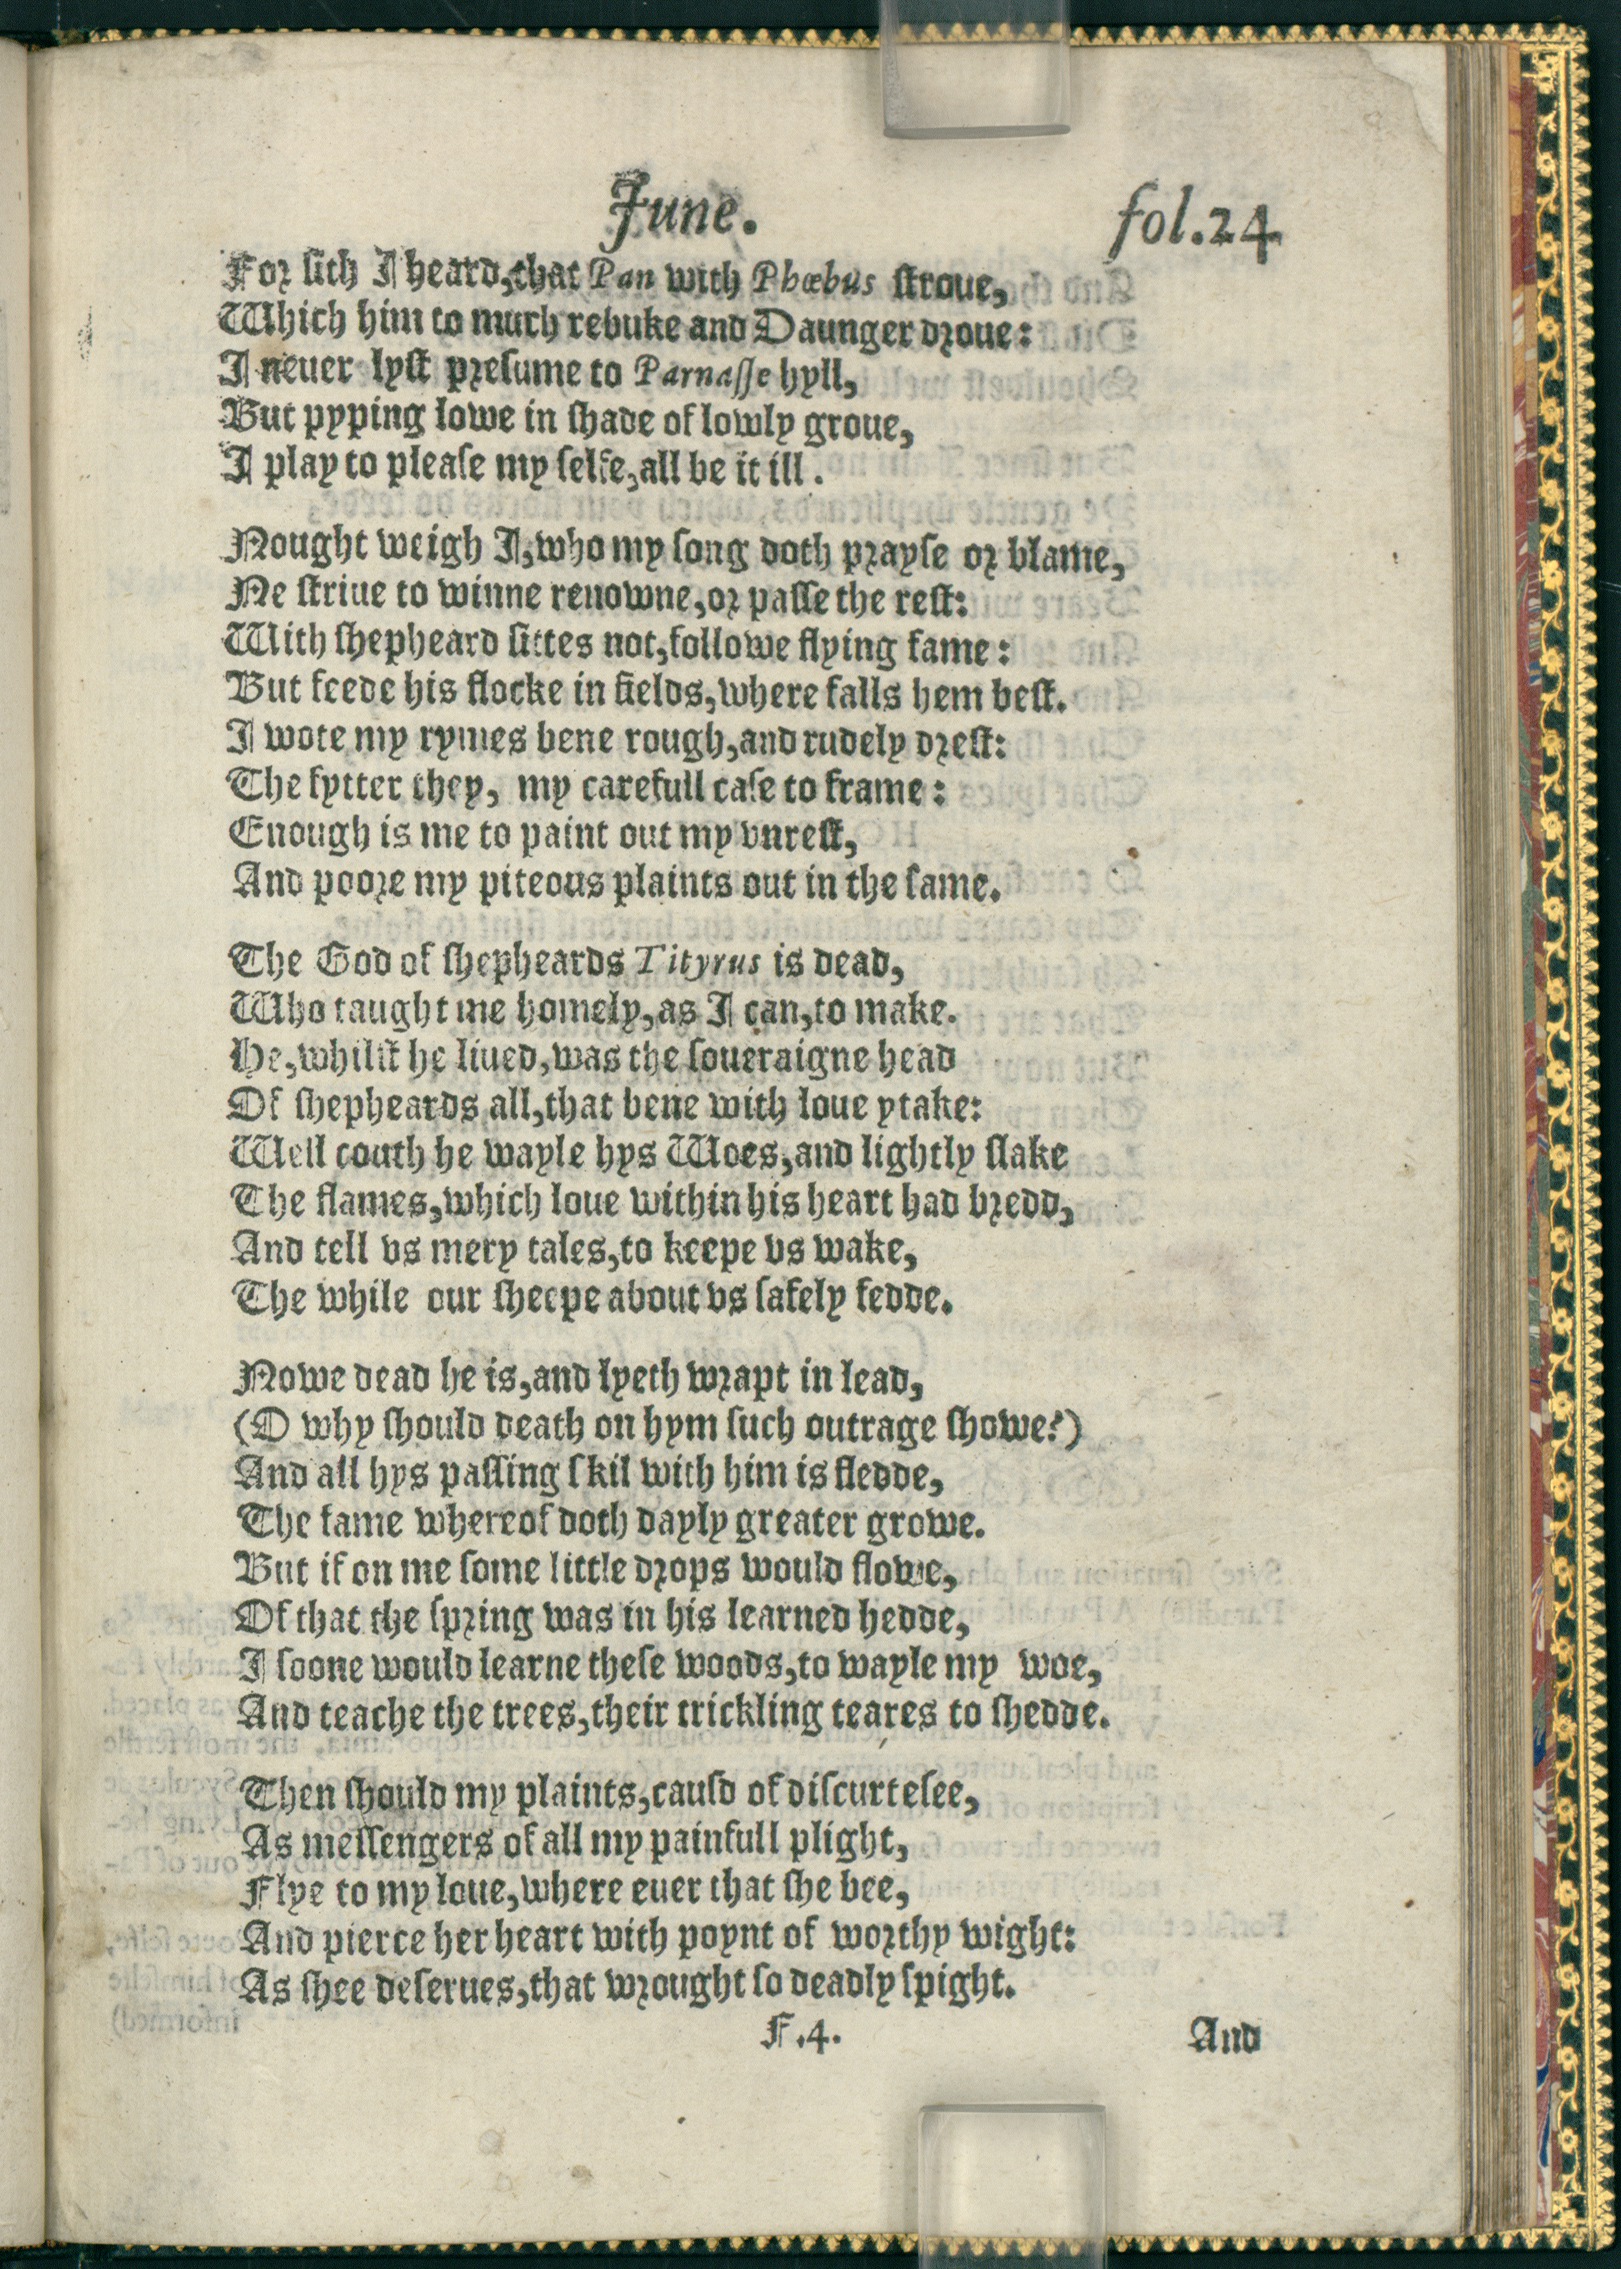 June.
fol.24
For ſith I heard,that Pan with Phœbus ſtroue,
Which him to much rebuke and Daunger droue:
I neuer lyſt preſume to Parnaſſe hyll,
But pyping lowe in ſhade of lowly groue,
I play to pleaſe my ſelfe,all be it ill.
Nought weigh I,who my ſong doth prayſe or blame,
Ne ſtriue to winne renowne,or paſſe the reſt:
With ſhepheard ſittes not,followe flying fame:
But feede his flocke in fields,where falls hem beſt.
I wote my rymes bene rough,and rudely dreſt:
The fytter they, my carefull caſe to frame:
Enough is me to paint out my vnreſt,
And poore my piteous plaints out in the ſame.
The God of ſhepheards Tityrus is dead,
Who taught me homely,as I can,to make.
He,whilſt he liued,was the ſoueraigne head
Of ſhepheards all,that bene with loue ytake:
Well couth he wayle hys Woes,and lightly ſlake
The flames,which loue within his heart had bredd,
And tell vs mery tales,to keepe vs wake,
The while our ſheepe about vs ſafely fedde.
Nowe dead he is,and lyeth wrapt in lead,
(O why ſhould death on hym ſuch outrage ſhowe?)
And all hys paſſing ſkil with him is fledde,
The fame whereof doth dayly greater growe.
But if on me ſome little drops would flowe,
Of that the ſpring was in his learned hedde,
I ſoone would learne theſe woods,to wayle my woe,
And teache the trees,their trickling teares to ſhedde.
Then ſhould my plaints,cauſd of diſcurteſee,
As meſſengers of all my painfull plight,
Flye to my loue,where euer that ſhe bee,
And pierce her heart with poynt of worthy wight:
As ſhee deſerues,that wrought ſo deadly ſpight.
F.4.
And